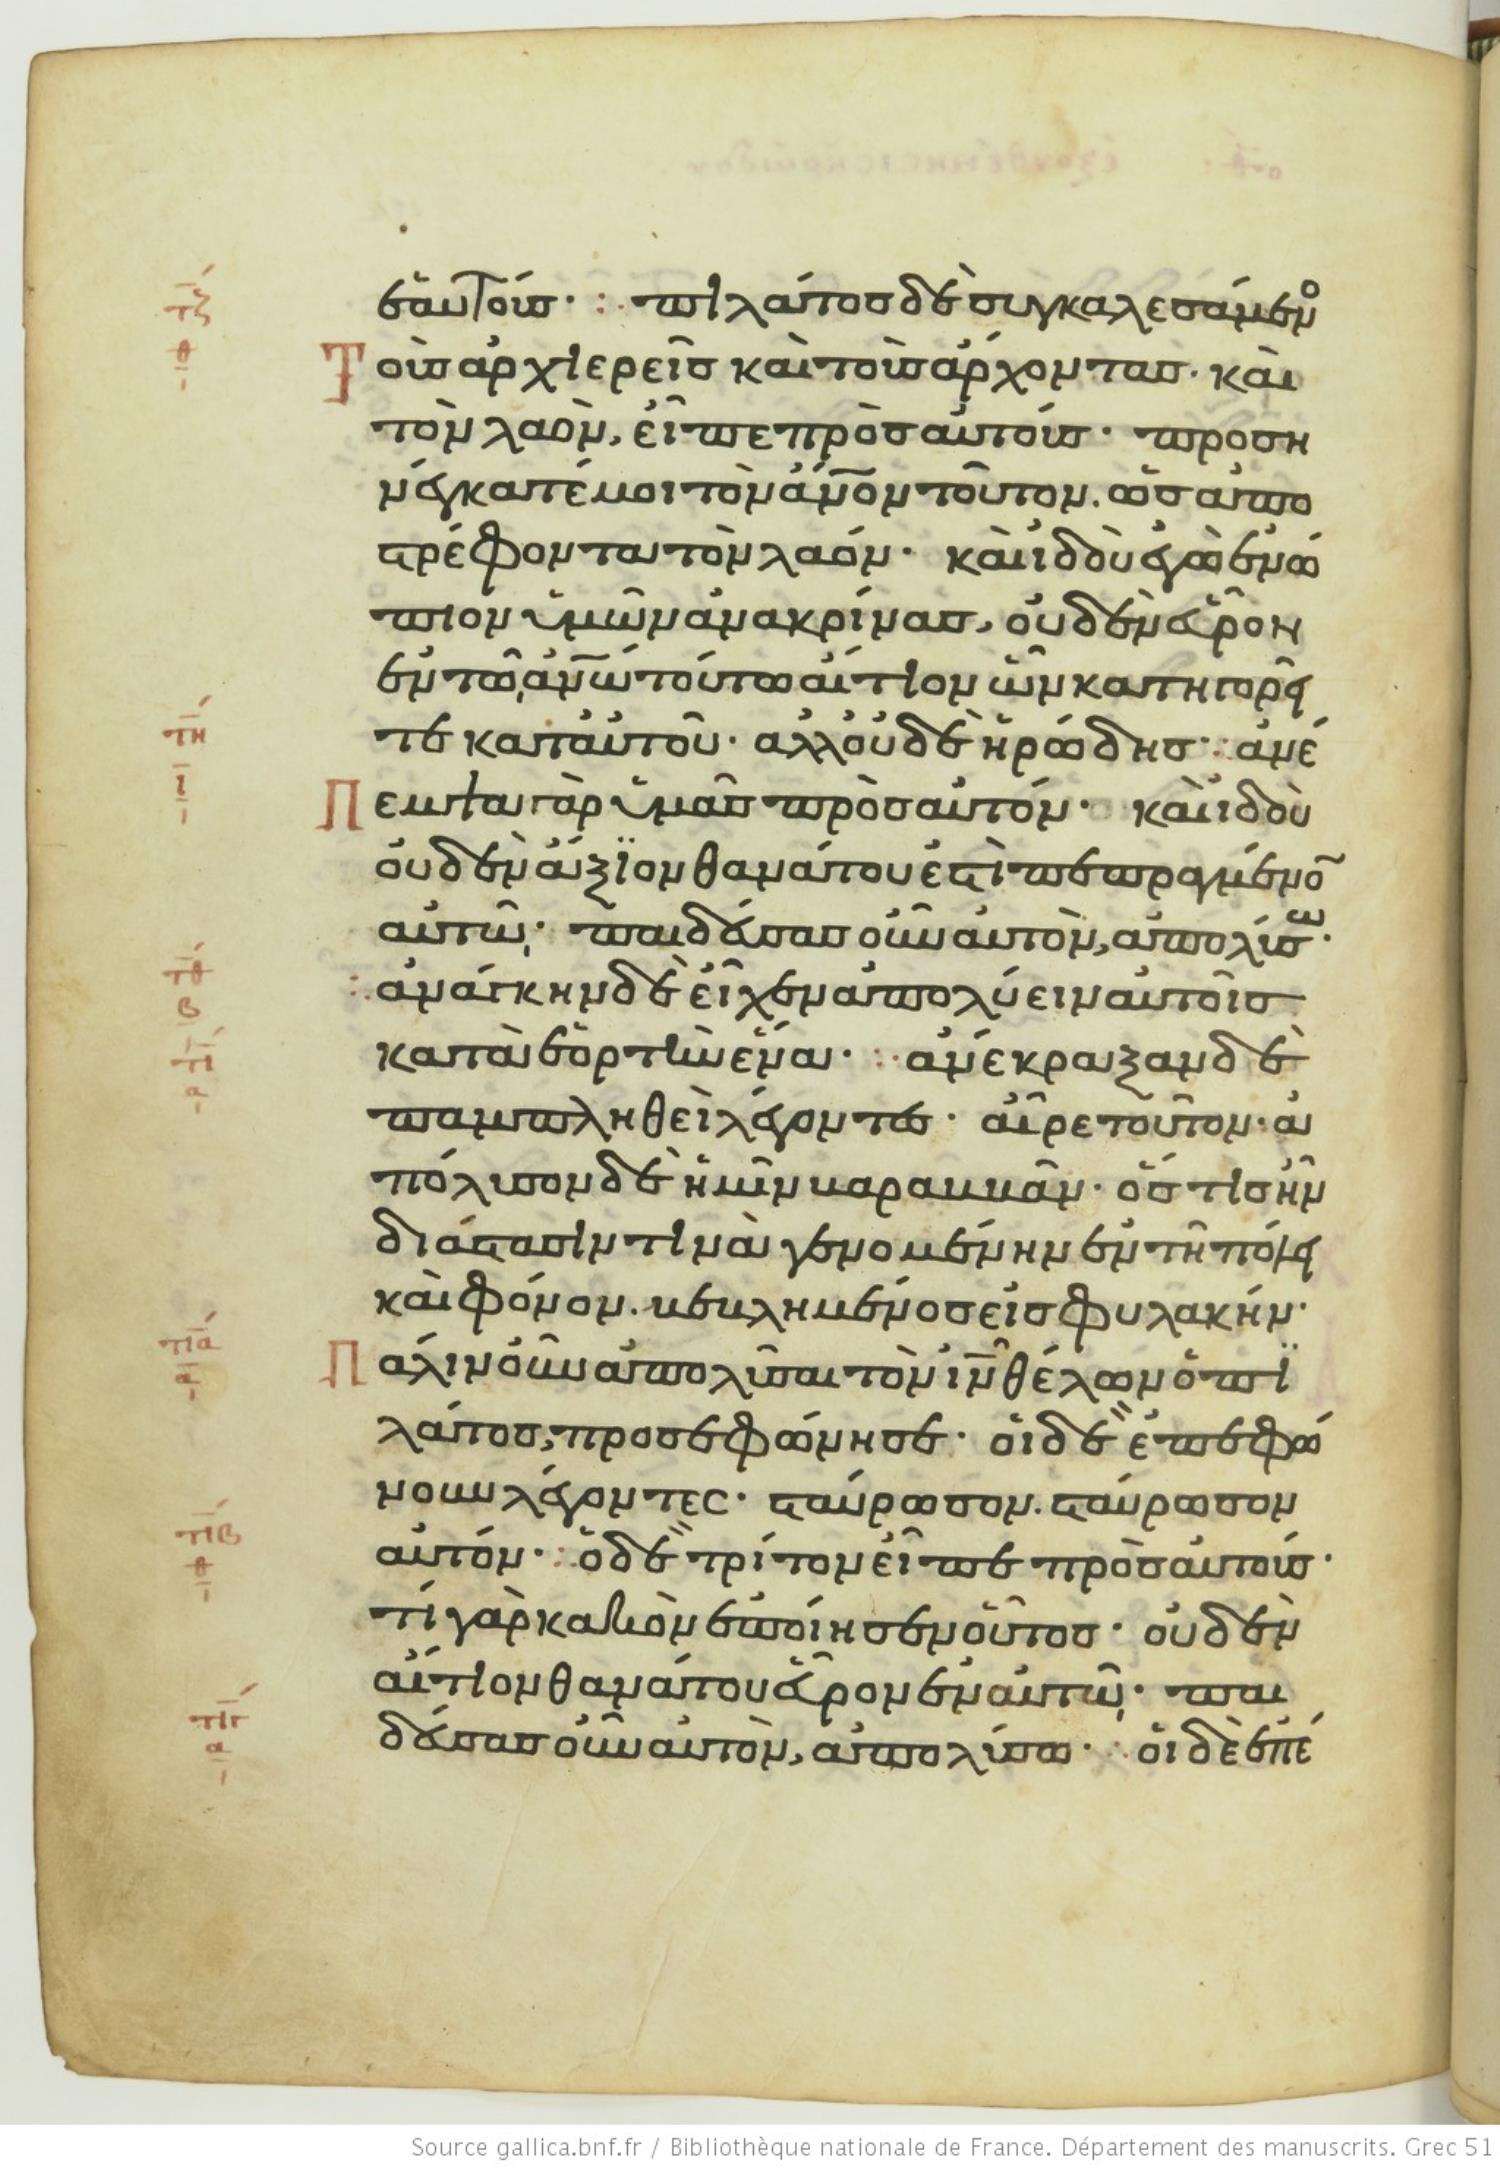 ἑαυτούς· πιλάτος δὲ συγκαλεσάμενο
Τοὺς ἀρχιερεῖς καὶ τοὺς ἄρχοντας· καὶ
τὸν λαὸν, εἶπε πρὸς αὐτούς· προση
νέγκατέ μοι τὸν ἄν̅ον τοῦτον. ὡς ἀπο
στρέφοντα τὸν λαόν· καὶ ἰδοὺ ἐγὼ ἐνώ
πιον ὑμῶν ἀνακρίνας, οὐδὲν εὗρον
ἐν τῷ ἀν̅ω τούτω αἴτιον ὧν κατηγορεῖ
τε κατ' αὐτοῦ· ἀλλ' οὐδὲ ἡρώδης· ἀνέ
Πεμψα γὰρ ὑμᾶς πρὸς αὐτόν· καὶ ἰδοὺ
οὐδὲν ἄξϊον θανάτου ἐστὶ πεπραγμένο̅
αὐτῷ· παιδεύσας οὖν αὐτὸν, ἀπολύσω·
ἀνάγκην δὲ εἶχεν ἀπολύειν αὐτοῖς
κατὰ ἑορτὴν ἕνα· ἀνέκραξαν δὲ
παμπληθεὶ λέγοντες· αἶρε τοῦτον· ἀ
πόλυσον δὲ ἡμῖν βαραββᾶν· ὅστις ἦν
διὰ στάσιν τινὰ γενομένην ἐν τῇ πόλει
καὶ φόνον. βεβλημένος εἰς φυλακήν·
Παλιν οὖν ἀπολῦσαι τὸν ἰν̅ θέλων ὁ πϊ
λάτος, προσεφώνησε· οἱ δὲ ἐπεφώ
νουν λέγοντες· σταύρωσον. σταύρωσον
αὐτόν· ὁ δὲ τρίτον εἶπε πρὸς αὐτούς·
τί γὰρ κακὸν ἐποίησεν οὗτος· οὐδὲν
αἴτιον θανάτου εὗρον ἐν αὐτῷ· παι
δεύσας οὖν αὐτὸν, ἀπολύσω· οἱ δὲ ἐπέ
τζ
θ
τη
ι
τθ
β
τι
α
τια
α
τιβ
θ
τιγ
α
Source gallica.bnf.fr / Bibliothèque nationale de France. Département des manuscrits. Grec 51